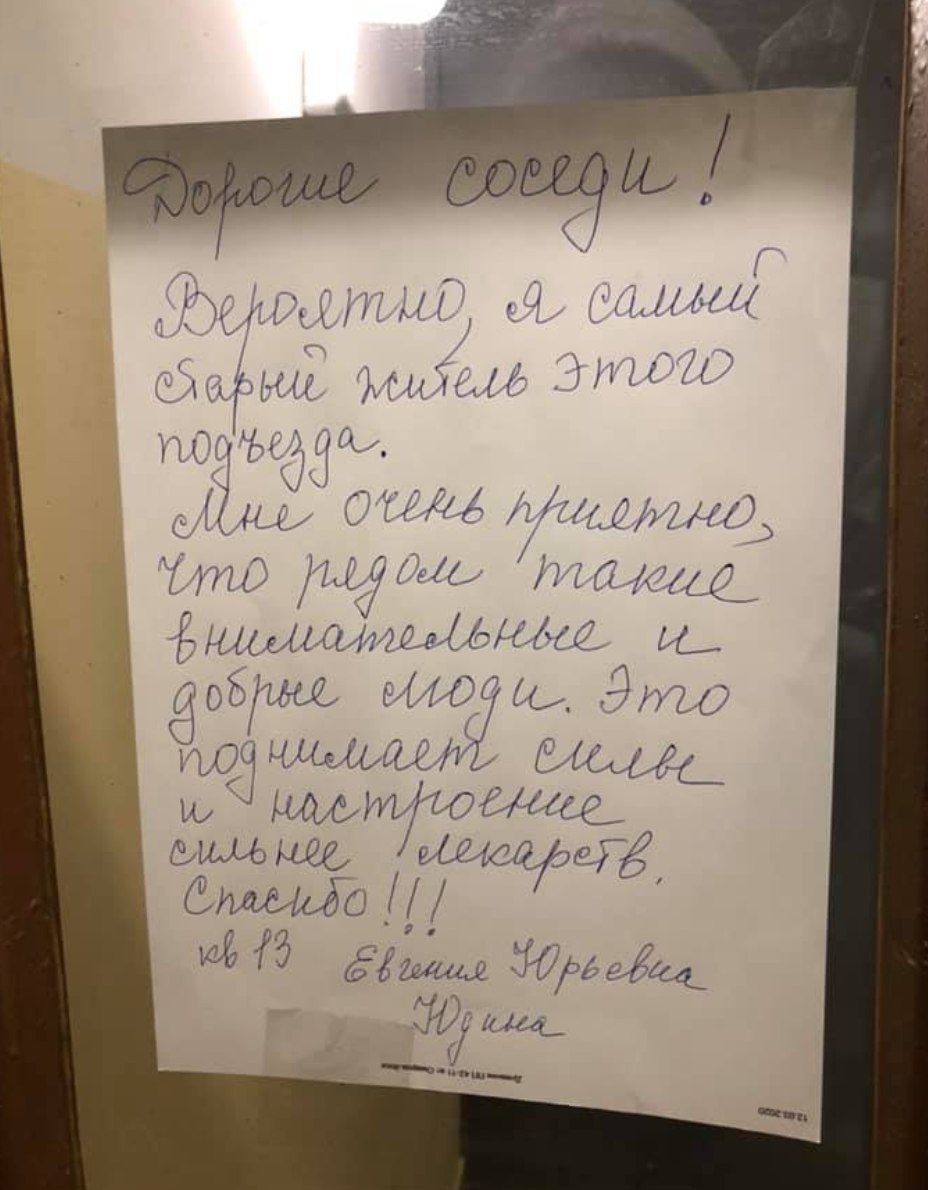 Дорогие соседи!
Вероятно, я самый
старый житель этого
подъезда.
Мне очень приятно,
что рядом такие
внимательные и
добрые люди. Это
поднимает силы
и настроение
сильнее лекарств.
Спасибо!!!
кв 13 Евгения Юрьевна
Юдина
12.03.2020